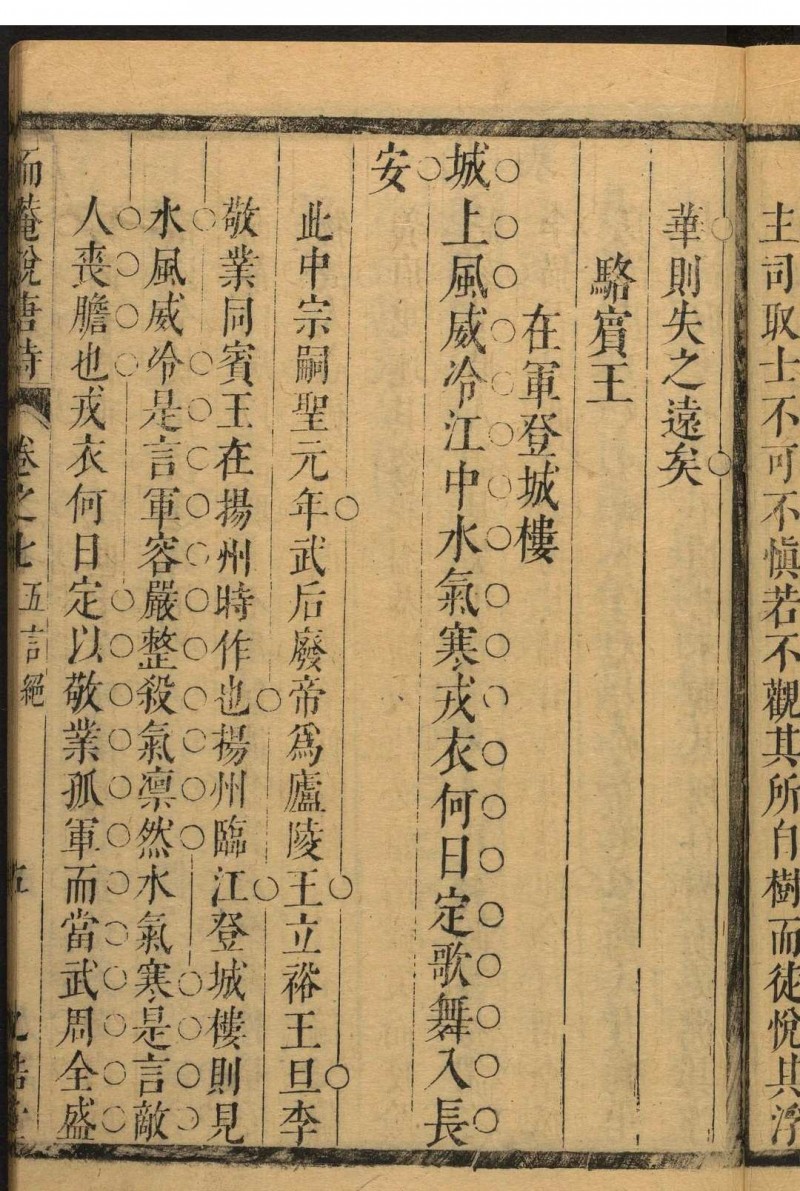 主司取士不可不慎若不觀其所自樹而徒悅其浮
華則失之遠矣
駱賓王
在軍登城樓
城上風威冷江中水氣寒戎衣何日定歌舞入長
安
此中宗嗣聖元年武后廢帝爲廬陵王立裕王旦李
敬業同賓王在揚州時作也揚州臨江登城樓則見
水風威冷是言軍容嚴整殺氣凛然水氣寒是言敵
人喪膽也戎衣何日定以敬業孤軍而當武周全盛
而菴說唐詩 卷之七 五言絕 五